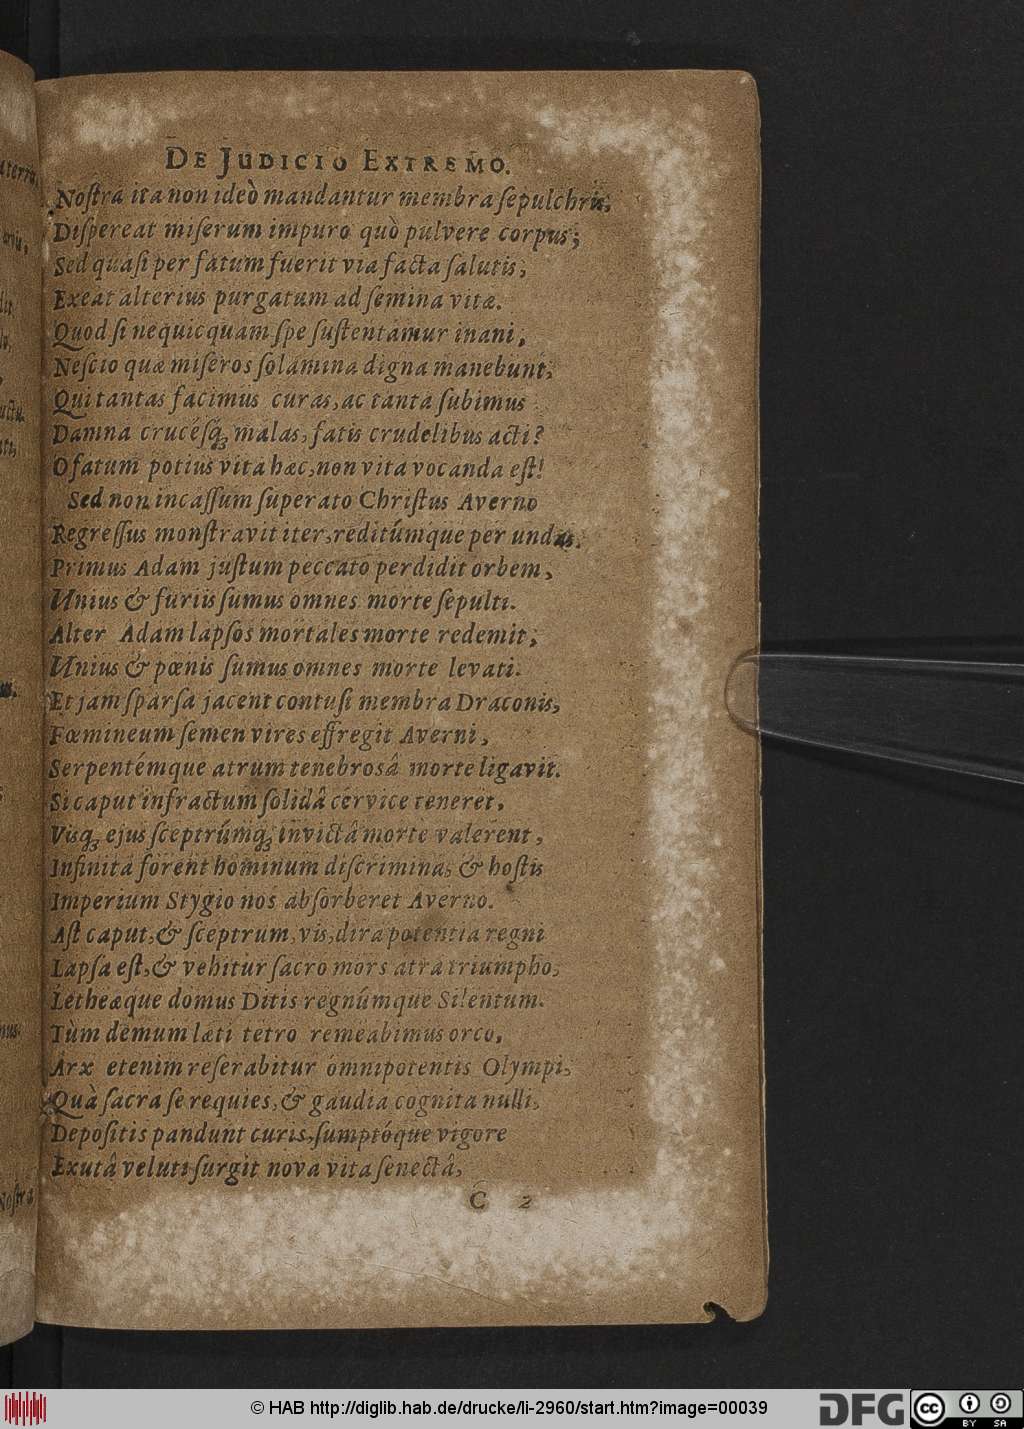 DE JUDICIO EXTREMO.
Noſtra ita non ideò mandantur membra ſepulchris,
Diſpereat miſerum impuro quò pulvere corpus;
Sed quaſi per fatum fuerit via facta ſalutis,
Exeat alterius purgatum ad ſemina vitæ.
Quod ſi nequicquam ſpe ſuſtentamur inani,
Neſcio quæ miſeros ſolamina digna manebunt,
Qui tantas facimus curas, ac tanta ſubimus
Damna cruceſq́; malas, fatis crudelibus acti?
O fatum potius vita hæc, non vita vocanda eſt!
Sed non incaſſum ſuperato Chriſtus Averno
Regreſſus monſtravit iter, reditúmque per undas.
Primus Adam juſtum peccato perdidit orbem,
Unius & furiis ſumus omnes morte ſepulti.
Alter Adam lapſos mortales morte redemit,
Unius & pœnis ſumus omnes morte levati.
Et jam ſparſa jacent contuſi membra Draconis,
Fœmineum ſemen vires effregit Averni,
Serpentémque atrum tenebrosâ morte ligavit.
Si caput infractum ſolidâ cervice teneret,
Viſq; ejus ſceptrúmq́; invictâ morte valerent,
Infinita forent hominum diſcrimina, & hoſtis
Imperium Stygio nos abſorberet Averno.
Aſt caput, & ſceptrum, vis, dira potentia regni
Lapſa eſt, & vehitur ſacro mors atra triumpho,
Letheæque domus Ditis regnúmque Silentum.
Tùm demum læti tetro remeabimus orco,
Arx etenim reſerabitur omnipotentis Olympi,
Quà ſacra ſe requies, & gaudia cognita nulli,
Depoſitis pandunt curis, ſumptóque vigore
Exutâ veluti ſurgit nova vita ſenectâ,
C 2
Noſtra
© HAB http://diglib.hab.de/drucke/li-2960/start.htm?image=00039
DFG
cc
BY SA